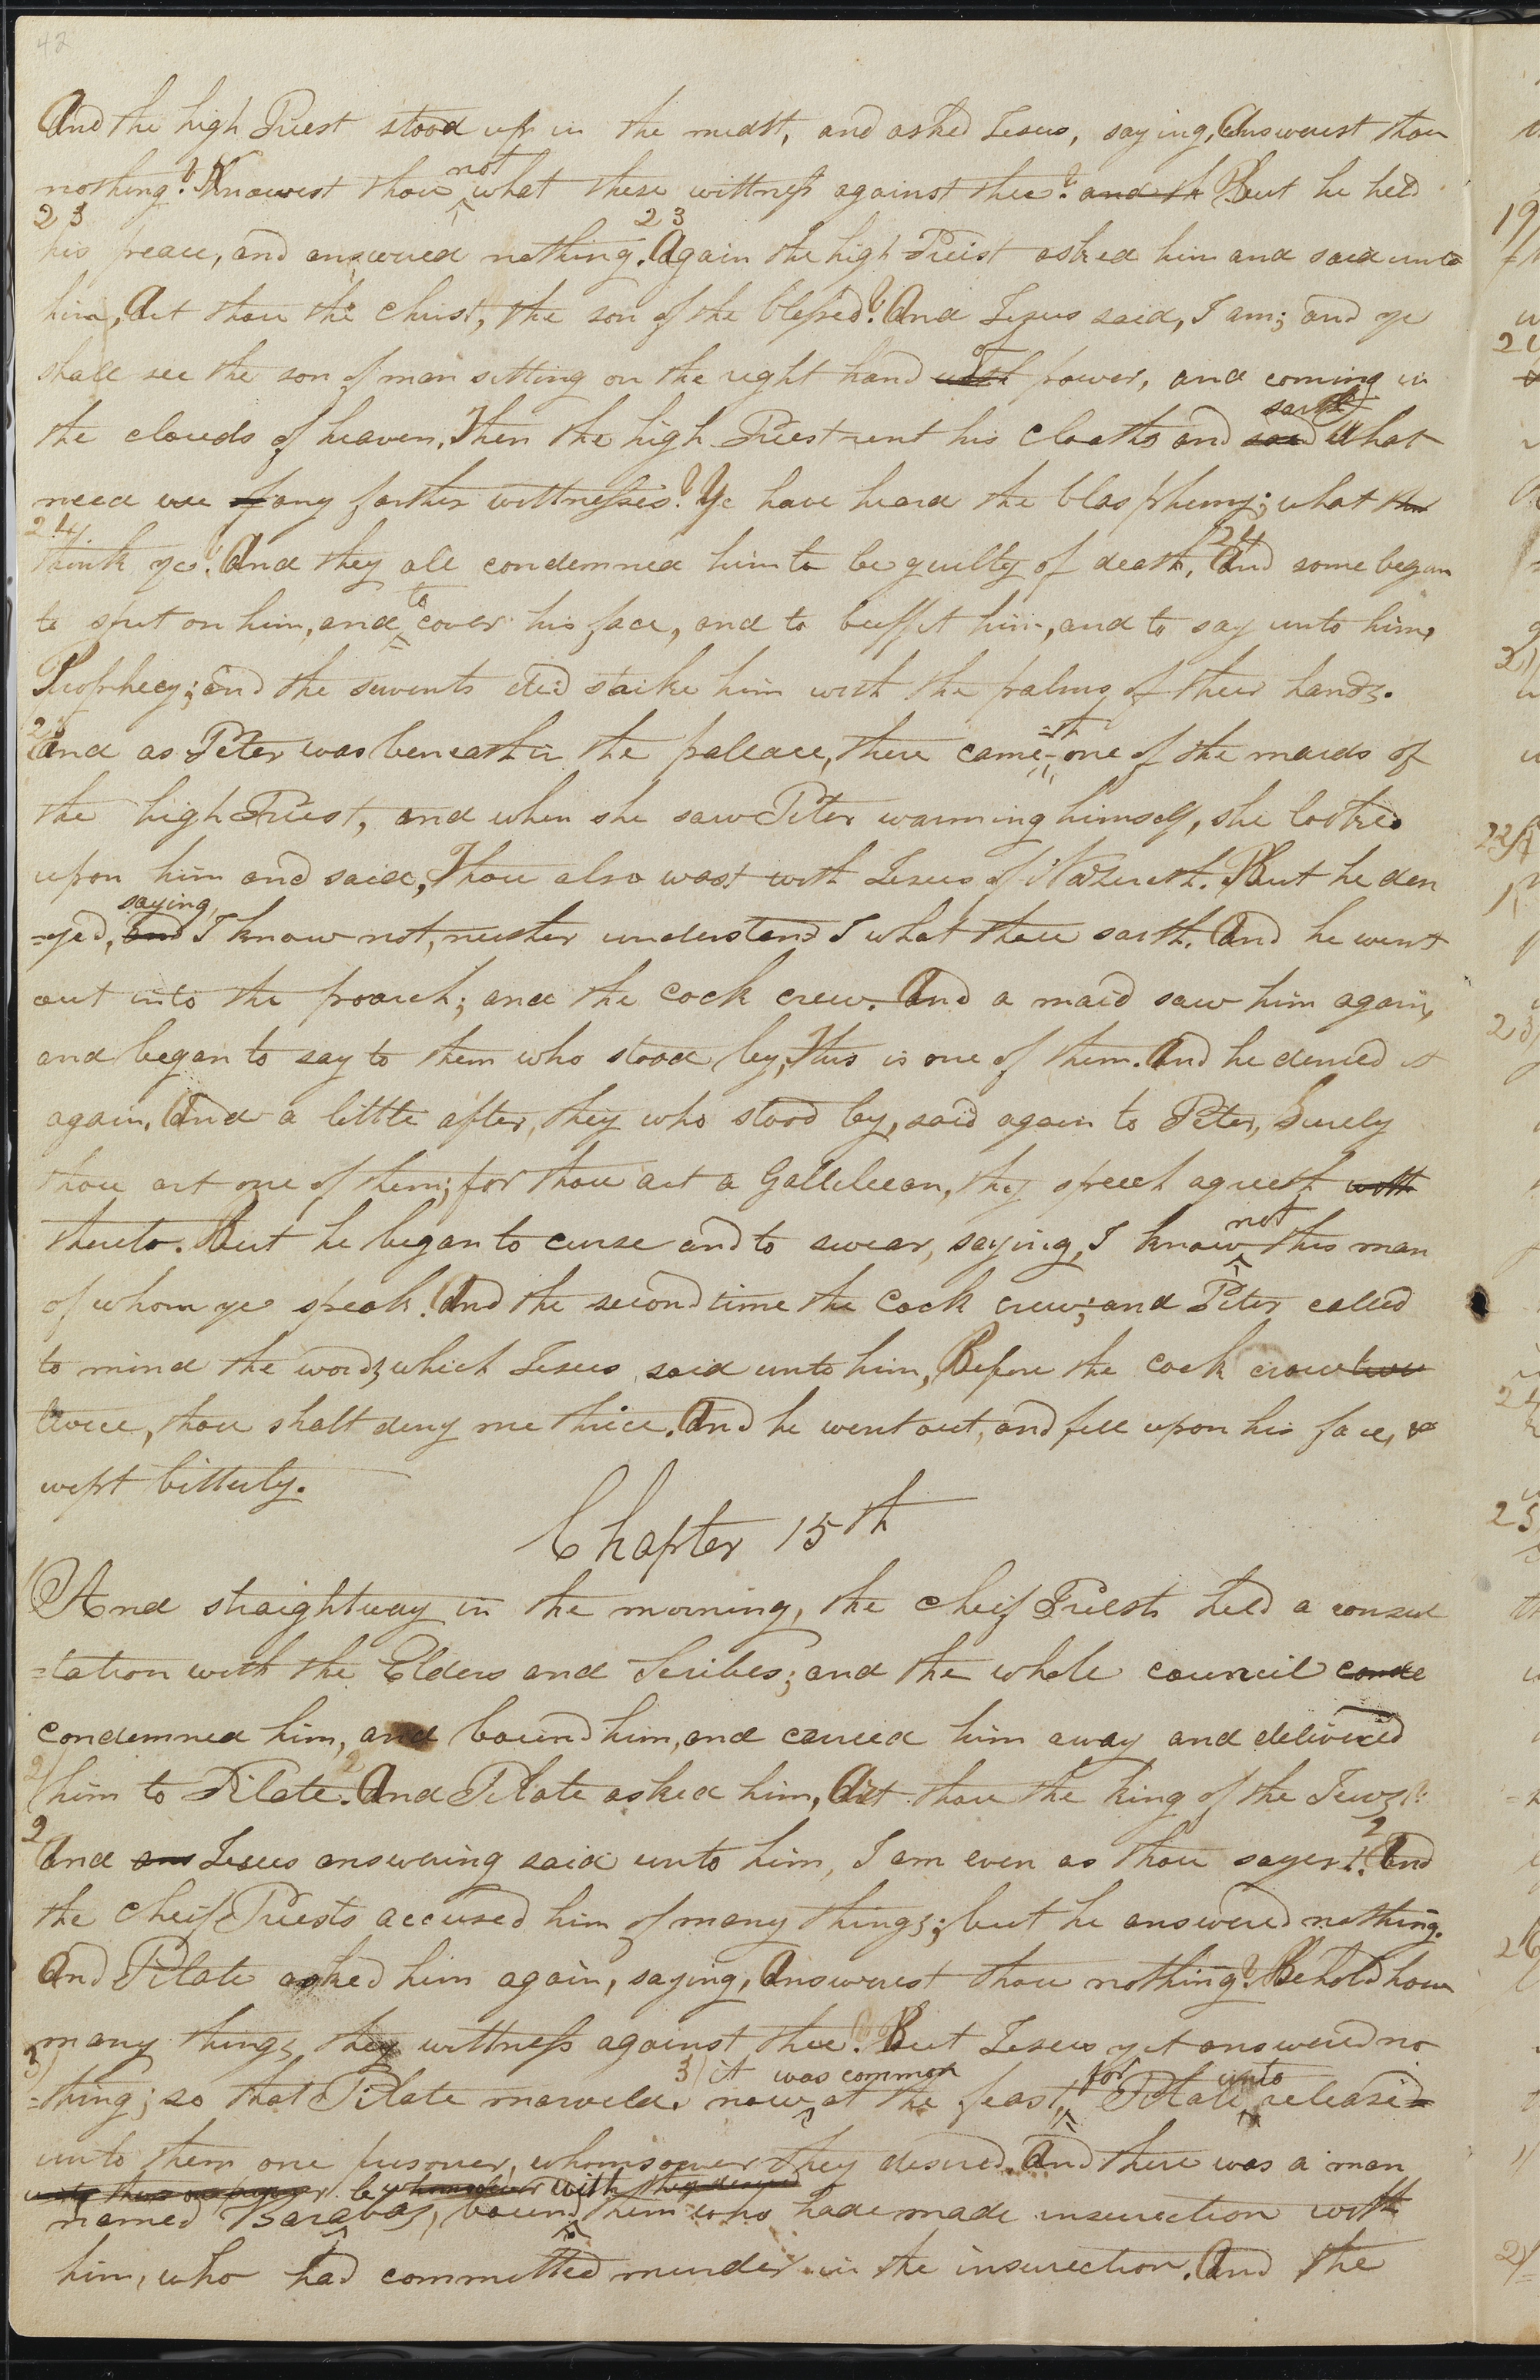 42
And the high Priest stood up in the midst, and asked Jesus, saying, Answerest thou
nothing? Knowest thou not what these wittness against thee? and th But he held
23 his peace, and answered nothing. 23 Again the high Priest asked him and said unto
him, Art thou the Christ, the son of the blessed? And Jesus said, I am; and ye
shall see the son of man sitting on the right hand of power, and coming in
the clouds of heaven. Then the high Priest rent his cloaths and said saith, What
need we of any farther wittnesses? Ye have heard the blasphemy; what thi
24 think ye? And they all condemned him to be guilty of death. 24 And some began
to spit on him, and to cover his face, and to buffet him, and to say unto him,
Prophecy; and the servents did strike him with the palms of their hands.
And as Peter was beneath in the pallace, there came-th one of the maids of
the high Priest, and when she saw Peter warming himself, she looked
upon him and said, Thou also wast with Jesus of Nazereth. But he den
=yed, and saying, I know not, neither understand I what thou saith. And he went
out into the poarch; and the cock crew. And a maid saw him again,
and began to say to them who stood by, This is one of them. And he denied it
again. And a little after, they who stood by, said again to Peter, Surely
thou art one of them; for thou art a Gallileean, thy speech agreeth with
thereto. But he began to curse and to swear, saying, I know not this man
of whom ye speak. And the second time the cock crew; and Peter called
to mind the words, which Jesus said unto him, Before the cock crow twi
twice, thou shalt deny me thrice. And he went out, and fell upon his face, &
wept bitterly.
Chapter 15th
1 And straightway in the morning, the cheif Priests held a consul
=tation with the Elders and Scribes; and the whole council conde
condemned him, and bound him, and carried him away and delivered
2 him to Pilate. 2 And Pilate asked him, Art thou the king of the Jews?
2 And ans Jesus answering said unto him, I am even as thou sayest. 2 And
the cheif Priests accused him of many things; but he answered nothing.
And Pilate asked him again, saying, Answerest thou nothing? Behold how
many things they wittness against thee. But Jesus yet answered no
3 =thing; so that Pilate marveled. 3 now it was common at the feast, for Pilate unto release
unto them one prisoner, whomsoever they desired. And there was a man
named Barabas, bound with them who hade made insurrection with
him, who had committed murder in the insurrection. And the